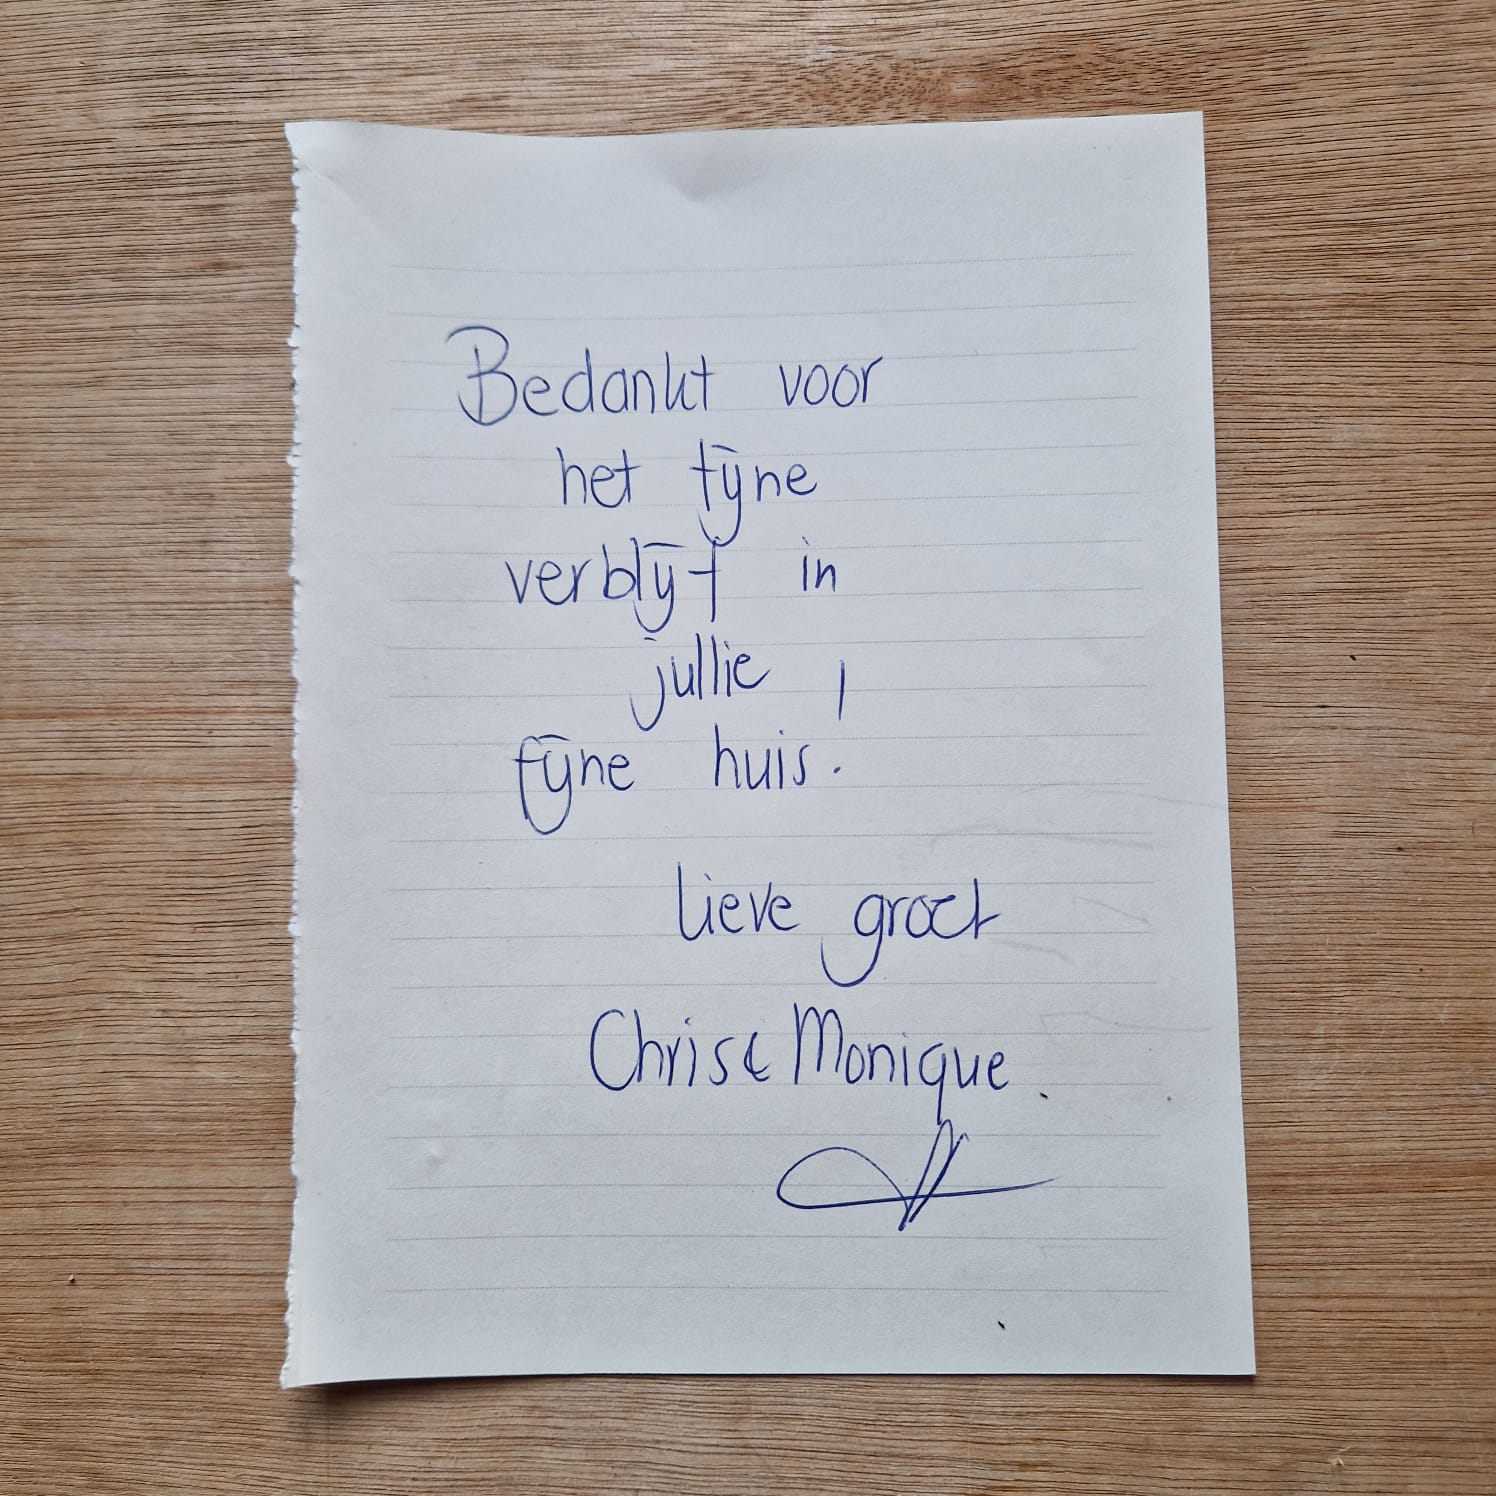 Bedankt voor
het fijne
verblijf in
jullie
fijne huis!
Lieve groet
Chris & Monique